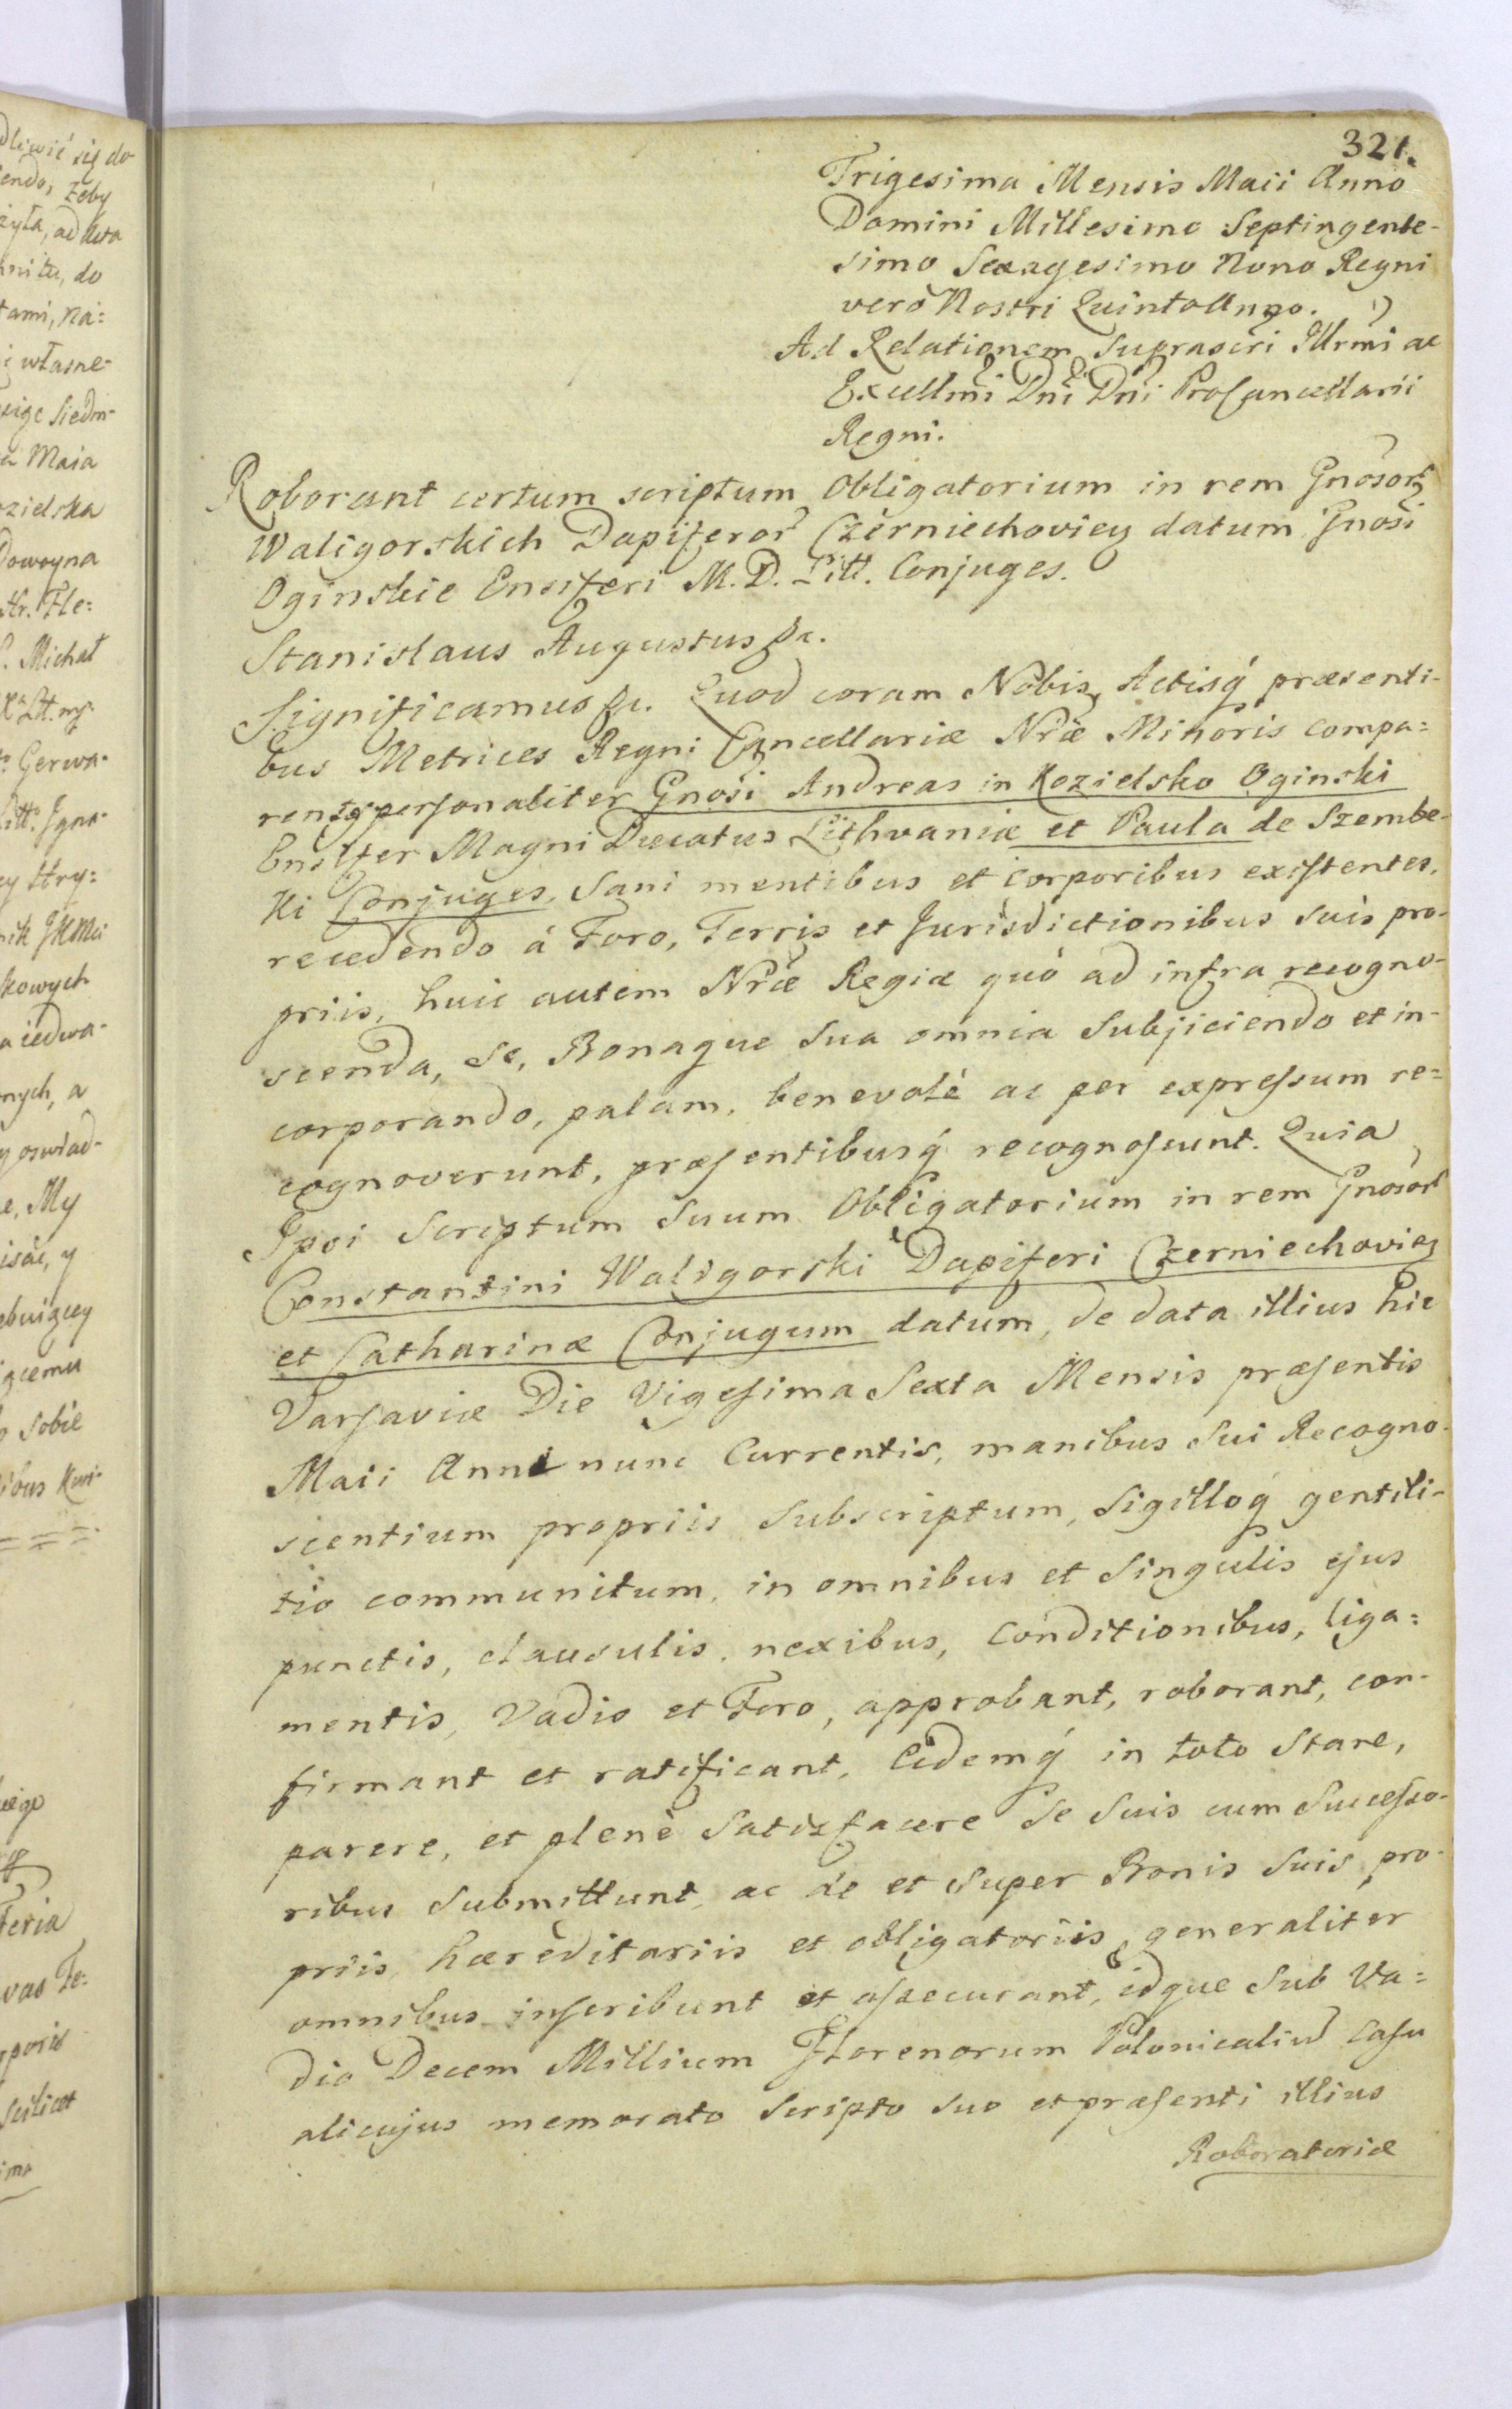 321.
Trigesima Mensis Maii Anno
Domini Millesimo Septingente-
simo Sexagesimo Nono Regni
verò Nostri Quinto Anno.
Ad Relationem Suprascri Illrmi ac
Excellmi Dni Dni ProCancellarii
Regni.
Roborant certum scriptum Obligatorium in rem Gnosor
Waligorskich Dapiferor Czerniechoviey datum Gnosi
Oginskie Ensiferi M. D. Litt. Conjuges.
Stanislaus Augustus &c.
Significamus &c. Quod coram Nobis, Actisq́ præsenti-
bus Metrices Regni Cancellariæ Nræ Minoris compa=
rentes personaliter Gnosi Andreas in Kozielsko Oginski
Ensifer Magni Ducatus Lithvaniæ et Paula de Szembe-
Ki Conjuges, Sani mentibus et corporibus existentes,
recedendo á Foro, Terris et Jurisdictionibus suis pro-
priis, huic autem Nræ Regiæ quó ad infra recogno-
scenda, Se, Bonaque Sua omnia Subjiciendo et in-
corporando, palam, benevolè ac per expressum re=
cognoverunt, præsentibusq́ recognoscunt. Quia
Ipsi Scriptum Suum Obligatorium in rem Gnosor
Constantini Waligorski Dapiferi Czerniechoviey
et Catharinæ Conjugum datum, de data illius hic
Varsaviæ Die Vigesima Sexta Mensis præsentis
Maii Anni nunc Currentis, manibus Sui Recogno-
scentium propriis Subscriptum, Sigilloq́ gentili-
tio communitum, in omnibus et Singulis ejus
punctis, clausulis, nexibus, Conditionibus, liga=
mentis, Vadio et Foro, approbant, roborant, con-
firmant et ratificant, Eidemq́ in toto Stare,
parere, et plenè Satisfacere Se Suis cum Successo-
ribus Submittunt, ac de et Super Bonis Suis, pro-
priis, hæreditariis et obligatoriis, generaliter
omnibus inscribunt et assecurant, idque Sub Va=
dio Decem Millium Florenorum Polonicaliu Casu
alicujus memorato Scripto Suo et præsenti illius
Roboratoriæ